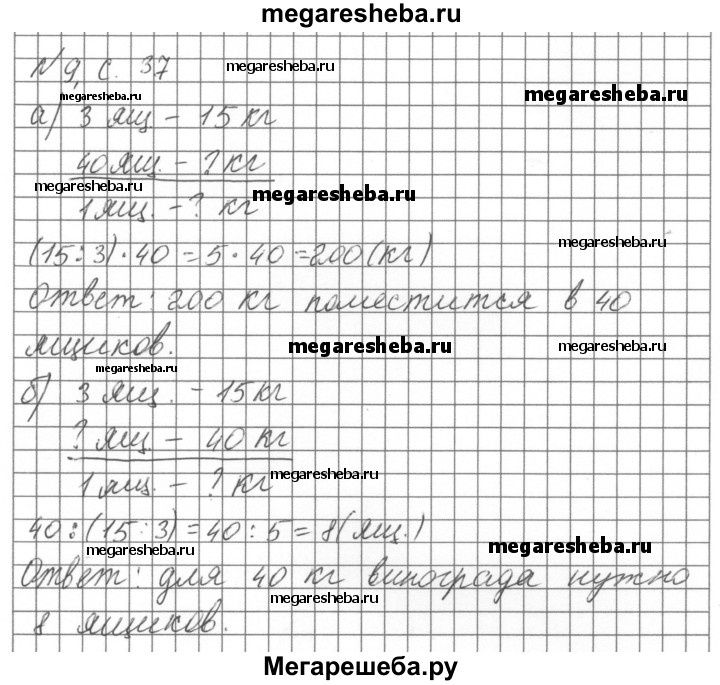 megaresheba.ru
№9, с. 37 megaresheba.ru
megaresheba.ru megaresheba.ru
а) 3 ящ. - 15 кг
40 ящ. - ? кг
megaresheba.ru megaresheba.ru
1 ящ. - ? кг
megaresheba.ru
(15:3)·40 = 5·40 = 200 (кг)
Ответ: 200 кг поместится в 40
ящиков. megaresheba.ru megaresheba.ru
megaresheba.ru
б) 3 ящ. - 15 кг
? ящ. - 40 кг
megaresheba.ru
1 ящ. - ? кг
40:(15:3) = 40:5 = 8 (ящ.)
megaresheba.ru megaresheba.ru
Ответ: для 40 кг винограда нужно
megaresheba.ru
8 ящиков.
Мегарешеба.ру